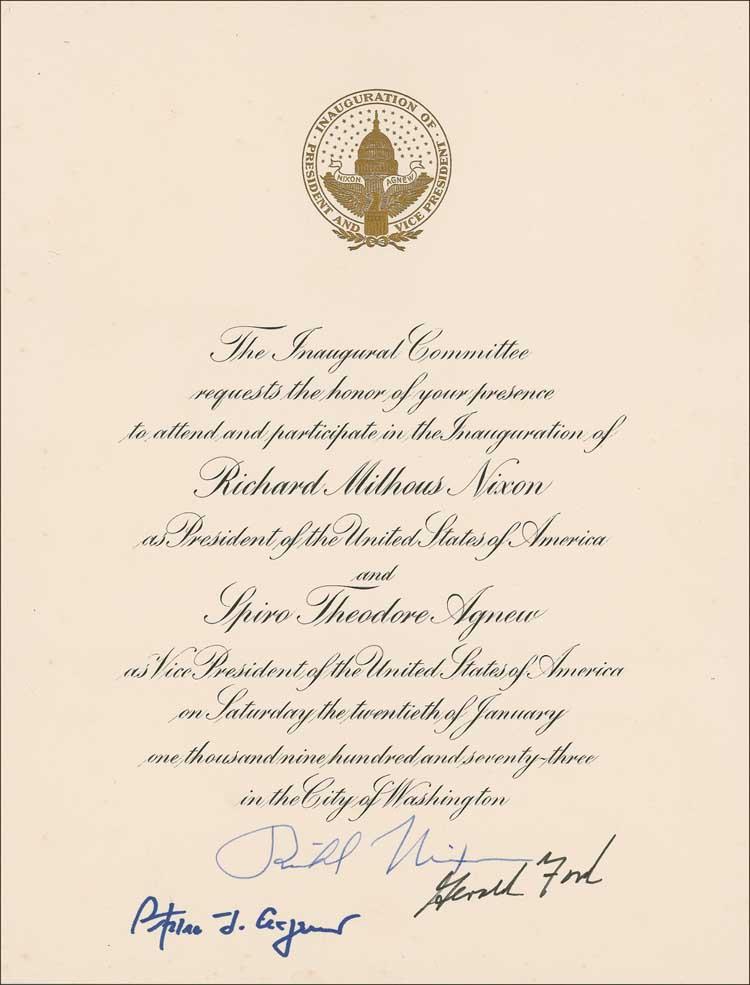 INAUGURATION OF
PRESIDENT AND VICE PRESIDENT
NIXON AGNEW
The Inaugural Committee
requests the honor of your presence
to attend and participate in the Inauguration of
Richard Milhous Nixon
as President of the United States of America
and
Spiro Theodore Agnew
as Vice President of the United States of America
on Saturday the twentieth of January
one thousand nine hundred and seventy-three
in the City of Washington
Richard Nixon
Gerald Ford
Spiro T. Agnew